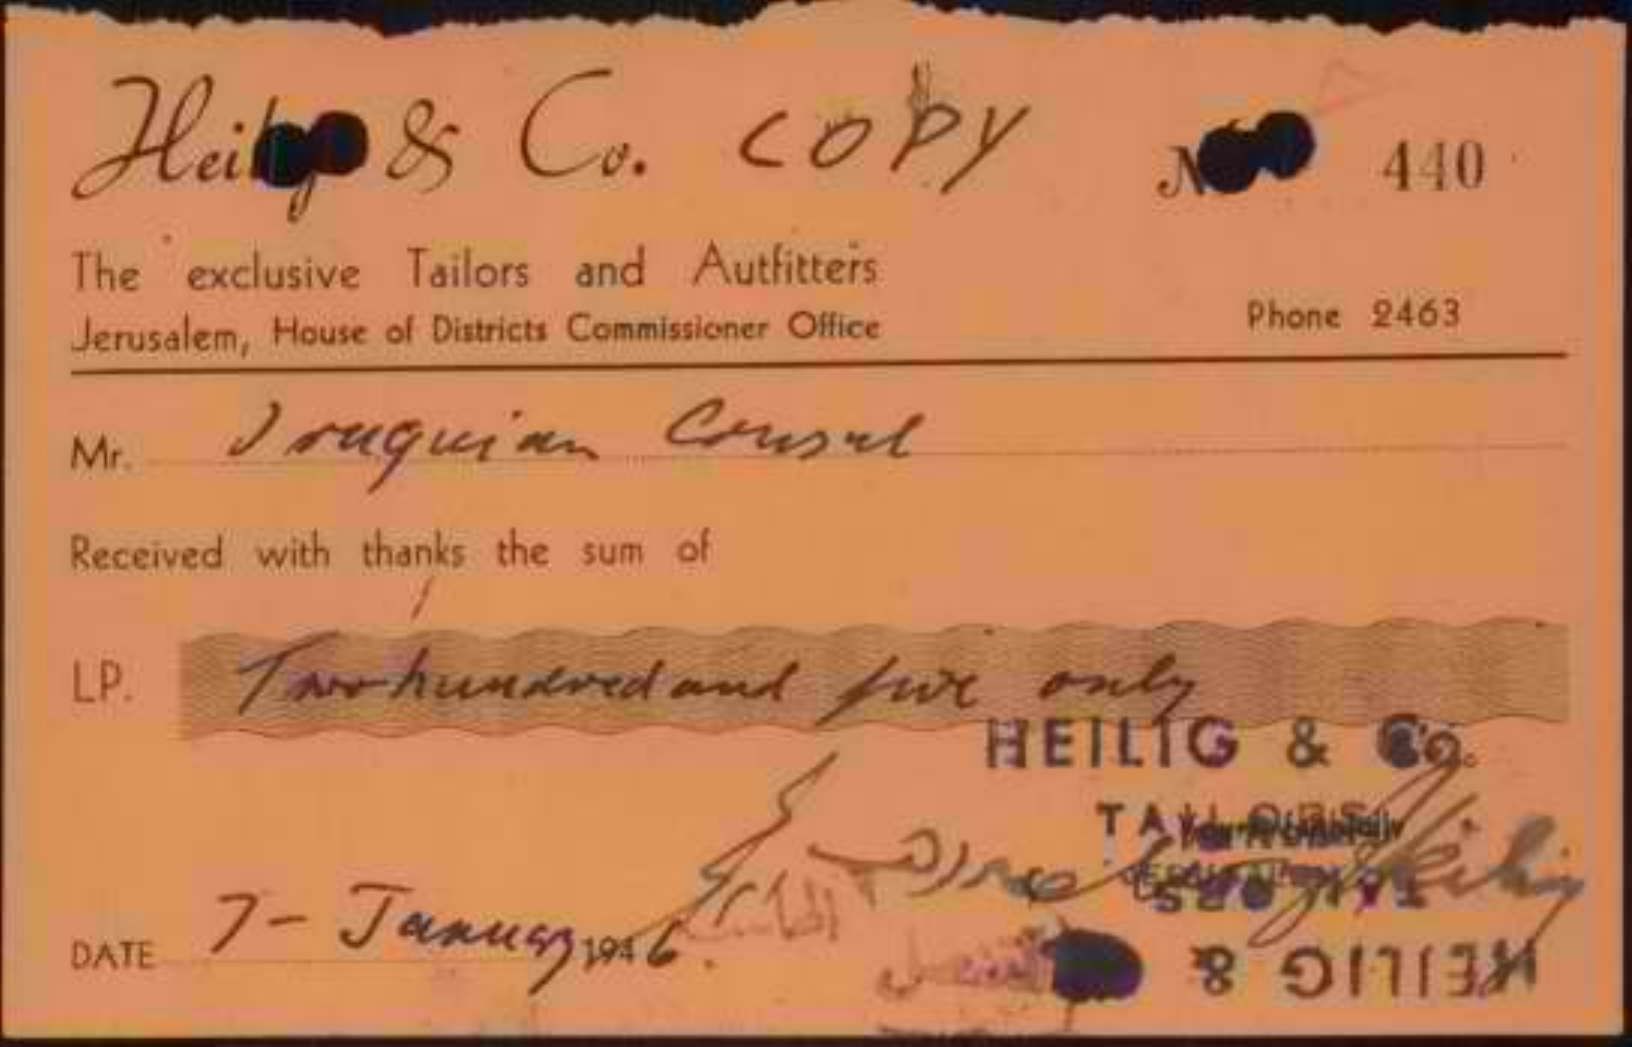 Heilig & Co. COPY
No 440
The exclusive Tailors and Autfitters
Jerusalem, House of Districts Commissioner Office
Phone 2463
Mr. Iraquian Consul
Received with thanks the sum of
LP. Two hundred and five only
HEILIG & Co.
TAILORS
DATE 7- January 1946.
TAILORS
HEILIG &